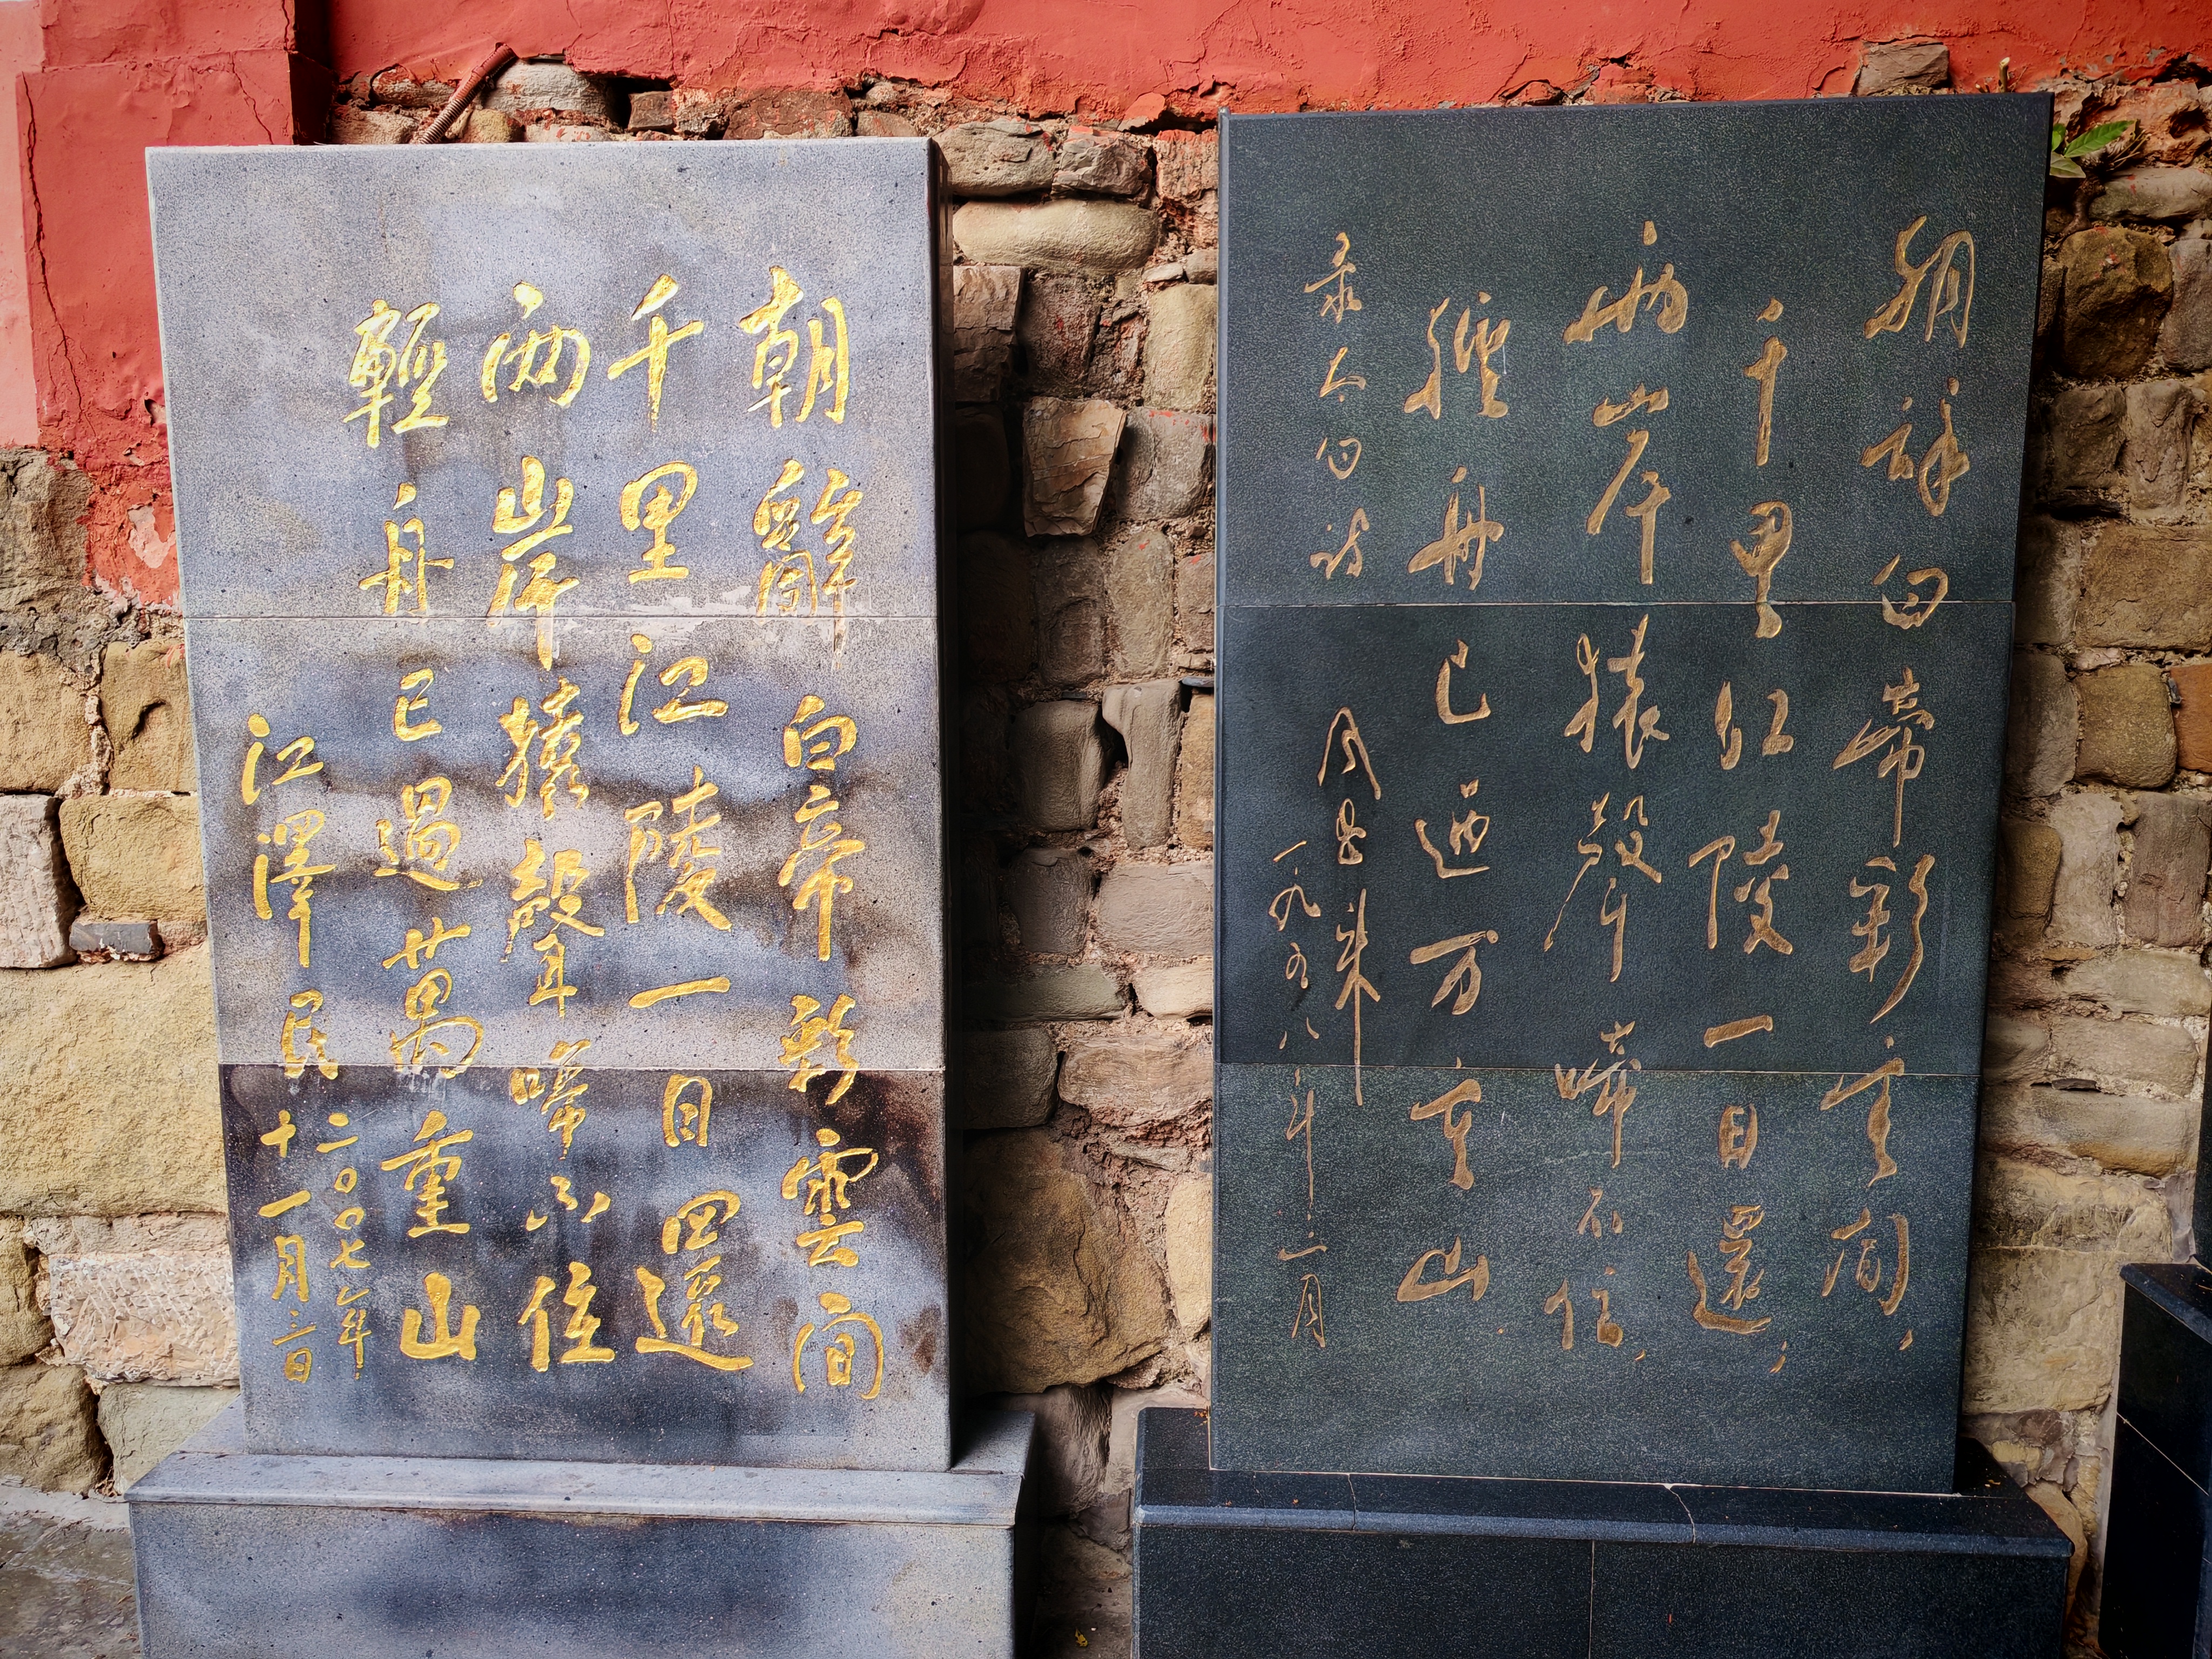 朝辞白帝彩云间，
千里江陵一日還；
两岸猿聲啼不住，
轻舟已過万重山
录太白诗
周恩来
一九五八年三月
朝辭白帝彩雲間
千里江陵一日還
兩岸猿聲啼不住
輕舟已過萬重山
江澤民
二〇〇七年
十一月三日